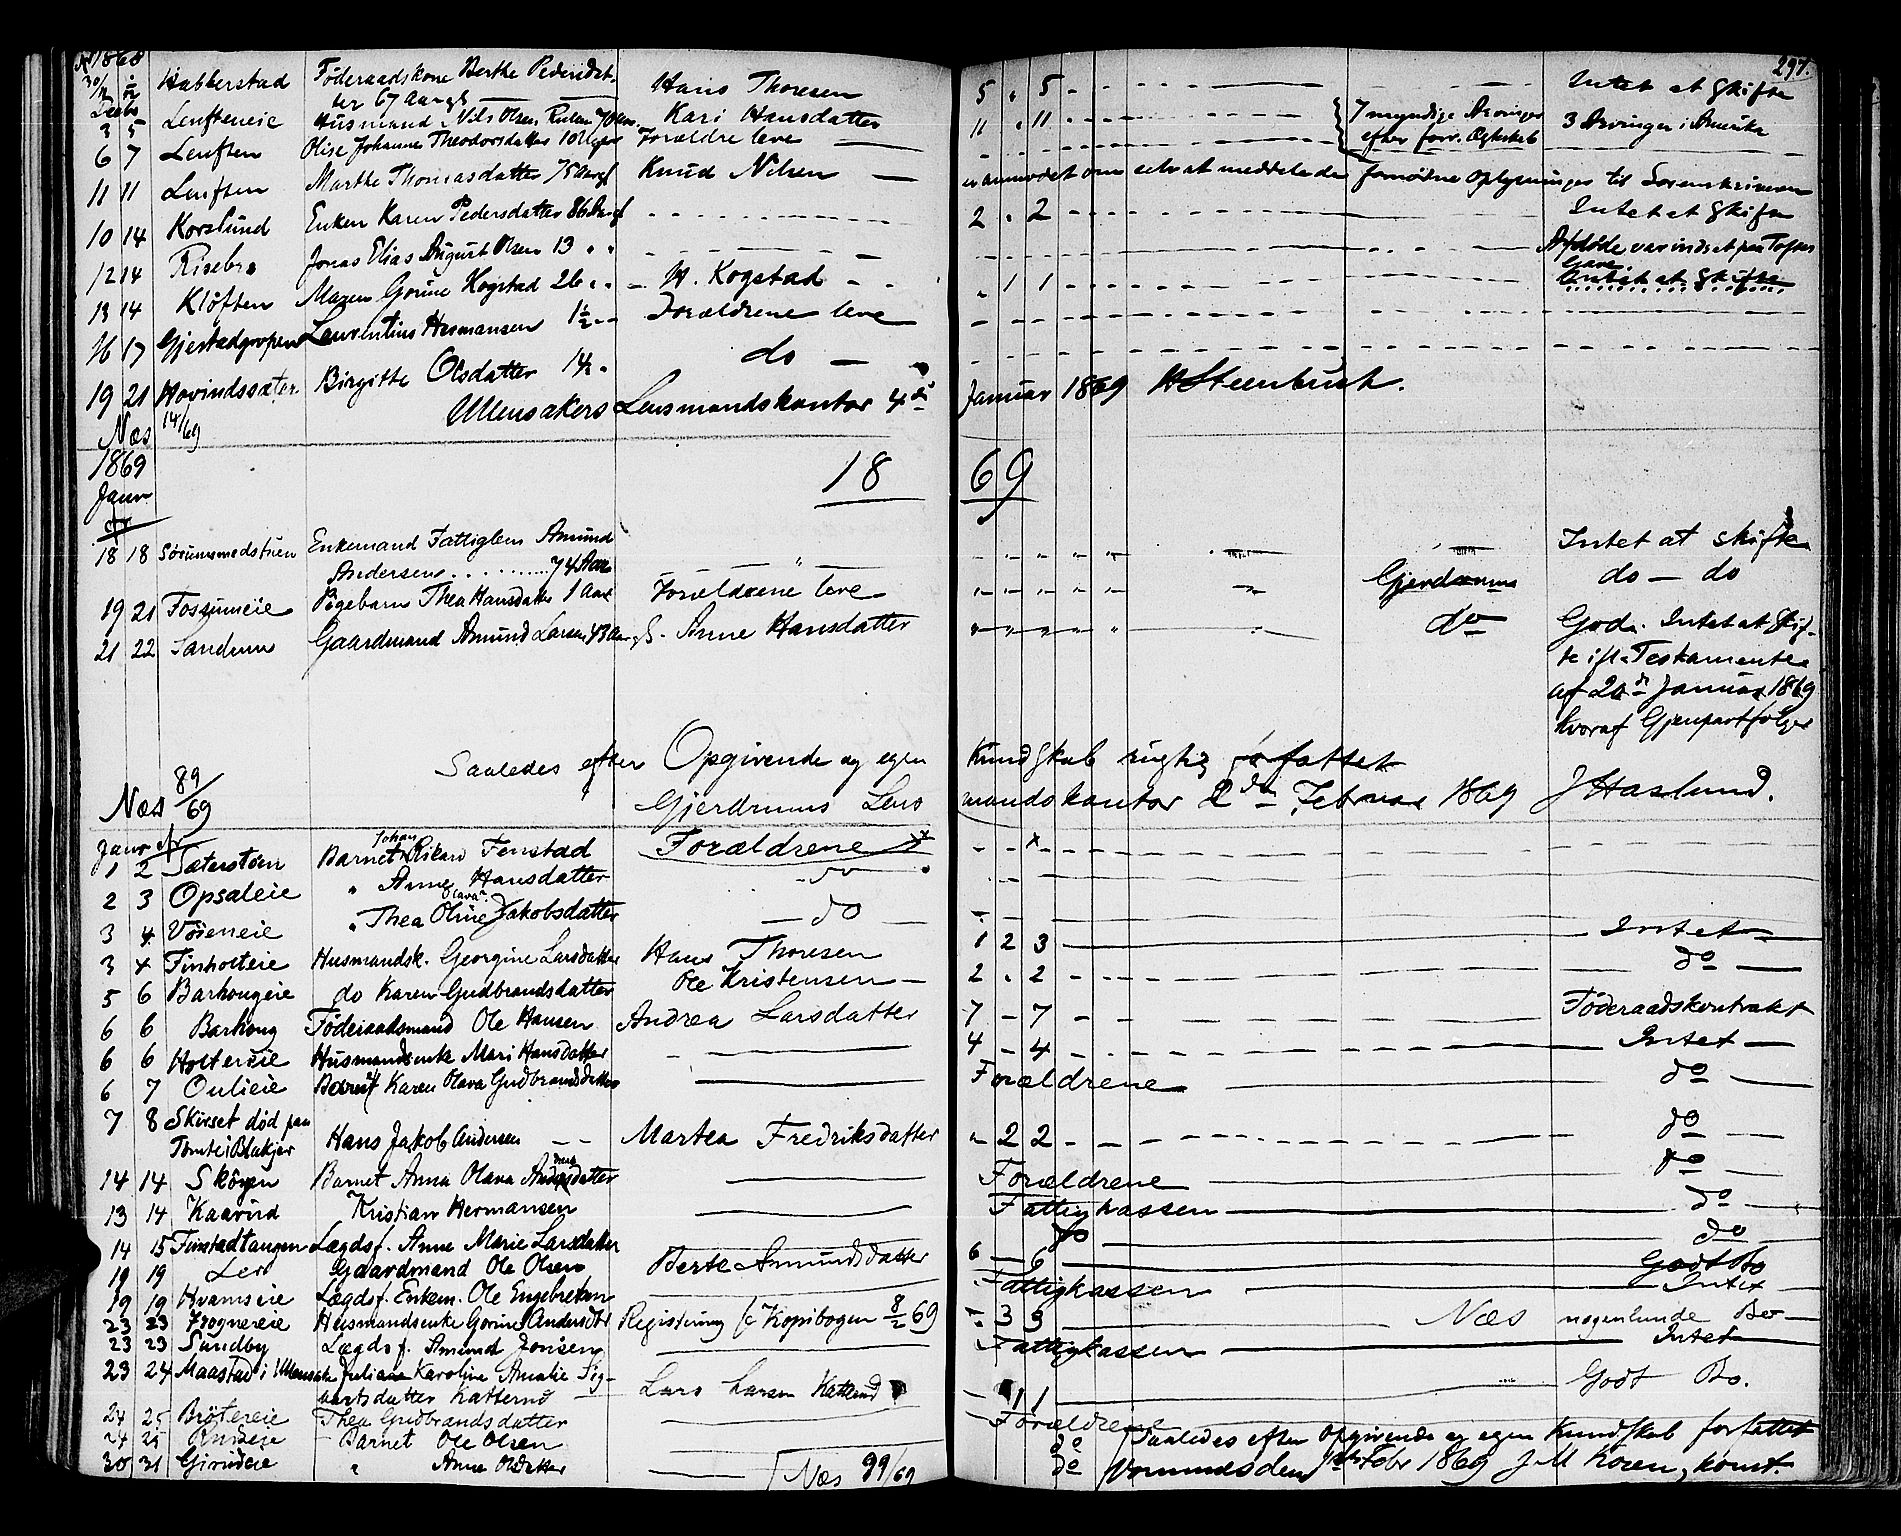 1868 297.
30/11 1/12 Habberstad Føderaadskone Berthe Pedersdat- Hans Thoresen 5 " 5 Intet at Skifte
Decbr ter 67 Aar gl
3 5 Lensteneie Husmand Nils Olsen 70 Kari Hansdatter 11 " 11 7 myndige Arvinger 3 Arvinger i Amerika
efter forr. Ægteskab
6 7 Lensten Olise Johanne Theodorsdatter 10 Uger Forældre leve
11 11 Lensten Marthe Thomasdatter 75 Aar gl Knud Nilsen er anmodet om selv at meddele de fornødne Oplysninger til Sorenskriveren
10 14 Korslund Enken Karen Pedersdatter 86 Aar gl 2 " 2 Intet at Skifte
12 14 Risebro Jonas Elias August Olsen 13 " " Afdøde var indsat paa Tofte
Gave
13 14 Kløften Maren Gorine Kogstad 26 " " H. Kogstad " 1 1 Intet at skifte
16 17 Gjestadgropen Laurentius Hermansen 1½ Forældrene leve
19 21 Hovindssæter Birgitte Olsdatter 14 do
Ullensakers Lensmandskontor 4de Januar 1869 HSteenbuch.
Næs 14/69
1869 1869
Januar
18 18 Sørumsmedstuen Enkemand Fattiglem Amund Intet at skifte
Andersen 74 Aar "
19 21 Fossumeie Pigebarn Thea Hansdatter 1 Aar Forældrene leve Gjerdrum do — do
21 22 Sandum Gaardmand Amund Larsen 43 Aar gl. Anne Hansdatter do Godt. Intet at Skif-
te ifl. Testamente
af 20de Januar 1869
hvoraf Gjenpart følger
Saaledes efter Opgivende og egen Kundskab rigtig forfattet
Næs 89/69 Gjerdrums Lensmandskontor 2den Februar 1869 J Haslund.
Januar
1 2 Sæterstøen Barnet Johan Rikard Fenstad Forældrene x x
2 3 Opsaleie " Anne Hansdatter do
3 4 Vøieneie " Thea Oline Olava Jakobsdatter do
3 4 Finholteie Husmandsk. Georgine Larsdatter Hans Thoresen 1 2 3 Intet
5 6 Barhougeie do Karen Gudbrandsdatter Ole Kristensen 2 " 2 do
6 6 Barhoug Føderaadsmand Ole Hansen Andrea Larsdatter 7 7 Føderaadskontrakt
6 6 Holtereie Husmandsenke Mari Hansdatter 4 4 Intet
6 7 Oulieie Barnet Karen Olava Gudbrandsdatter Forældrene do
7 8 Skirset død paa
Tomte i Blakjer Hans Jakob Andersen Martea Fredriksdatter " 2 2 do
14 14 Skøyen Barnet Anna Olava Andersdatter Forældrene do
13 14 Kaarud Kristian Hermansen Fattigkassen do
14 15 Finstadtangen Lægdsf. Anne Marie Larsdatter do do
19 19 Gaardmand Ole Olsen Berte Amundsdatter 6 6 Godt Bo
19 19 Hvamseie Lægdsf. Enkem. Ole Engebretsen Fattigkassen Intet
23 23 Frognereie Husmandsenke Gorine Andersdtr Registrering f. Kopibogen 8/2 69 3 3 Næs nogenlunde Bo
23 23 Sundby Lægdsf. Amund Jonsen Fattigkassen Intet
23 24 Maastad i Ullensaker Juliane Karoline Amalie Sig-
vartsdatter Katterud Lars Larsen Katterud " 1 1 Godt Bo.
24 25 Brøtereie Thea Gudbrandsdatter Forældrene
24 25 Barnet Ole Olsen do Saaledes efter Opgivende og egen Kundskab forfattet
30 31 Girudeie " Anne Olsdatter Næs 99/69 do Febr 1869 J M Koren, konst.